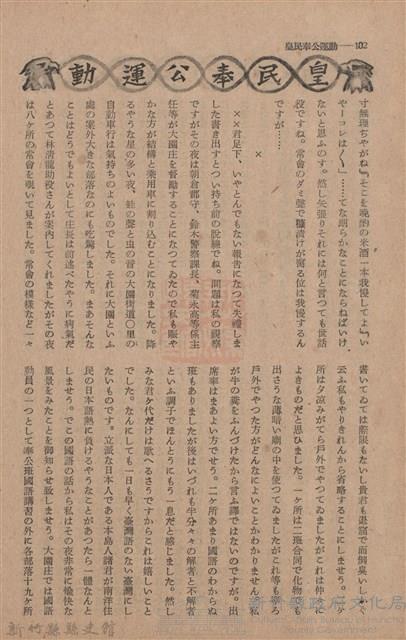 皇民奉公運動——102
皇民奉公運動
寸無理ぢやがね』『そこを晩酌の米酒一本我慢してよ』『い
や、コレは〱』……てな朗らかなことにならねばいけ
ないと思ふのす。然し矢張りそれには何と言つても世話
役ですね。常會のダミ聲で膝詰けが罷る位は我慢するん
ですが……
×
××君足下、いやとんでもない報告になつて失禮しま
した書き出すとつい持ち前の脱線でね。問題は私の視察
ですがその夜は朝倉郡守、鈴木警察課長、菊永高等係主
任等が大園庄を督勵することになつてゐたので私も賑や
かな方が結構と乘用車に割り込むことになりました。降
るやうな星の多い夜、蛙の聲と虫の音の大園街道〇里の
自動車行は氣持ちのよいものでした。それに大園といふ
處の案外大きな部落なのにも吃驚しました。まあそんな
ことはどうでもよいとして庄長は前述べたやうに病氣だ
とあつて林清龍助役さんが案内してくれましたがその夜
は八ケ所の常會を覗いて見ました。常會の模樣など一々
書いてゐては際限もないし貴君も退屈で面倒臭いしと
云ふ私もやりきれんから省略することにしませう。二ケ
所は夕涼みがてら戸外でやつてゐましたがこれは仲々
よきものだと思ひました。一ケ所は二班合同で化物でも
出さうな薄暗い廟の中を使つてゐましたがこれ等もう
戸外でやつた方がどんなによいことかわかりません。私
が牛の糞をふんづけたから言ふ譯ではないのですが。出
席率はまあよい方でせう。二ケ所あまり國語のわからぬ
班もありましたが後はいづれも半分々々の解者と不解者
といふ調子でほんとうにもう一息だと感じました。然し
みな君ケ代だけは歌へるさうですからこれは嬉しいこと
でした。なんにしても一日も早く臺灣語のない臺灣にし
たいものです。立派な日本人である本島人諸君が南洋住
民の日本語熱に負けるやうなことがあつたら一體なんと
しませう。でこの國語の話から私はその夜非常に愉快な
風景をみたことを御知らせ致しませう。大園庄では國語
動員の一つとして奉公班國語講習の外に各部落十九ケ所
新竹縣政府文化局
新竹縣縣史館